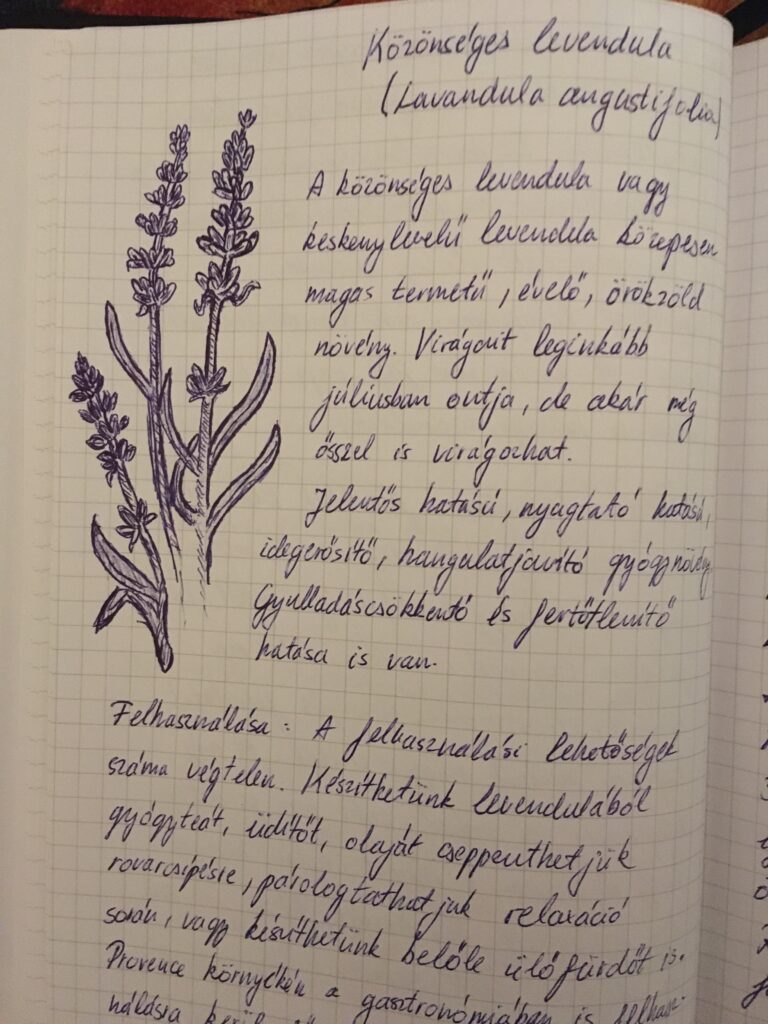 Közönséges levendula
(Lavandula angustifolia)
A közönséges levendula vagy
keskenylevelű levendula közepesen
magas termetű, évelő, örökzöld
növény. Virágait leginkább
júliusban ontja, de akár még
ősszel is virágozhat.
Jelentős hatású, nyugtató hatású,
idegerősítő, hangulatjavító gyógynövény.
Gyulladáscsökkentő és fertőtlenítő
hatása is van.
Felhasználása: A felhasználási lehetőségek
száma végtelen. Készíthetünk levendulából
gyógyteát, üdítőt, olaját cseppenthetjük
rovarcsípésre, párologtathatjuk relaxáció
során, vagy készíthetünk belőle ülőfürdőt is.
Provence környékén a gasztronómiában is felhasz-
nálásra